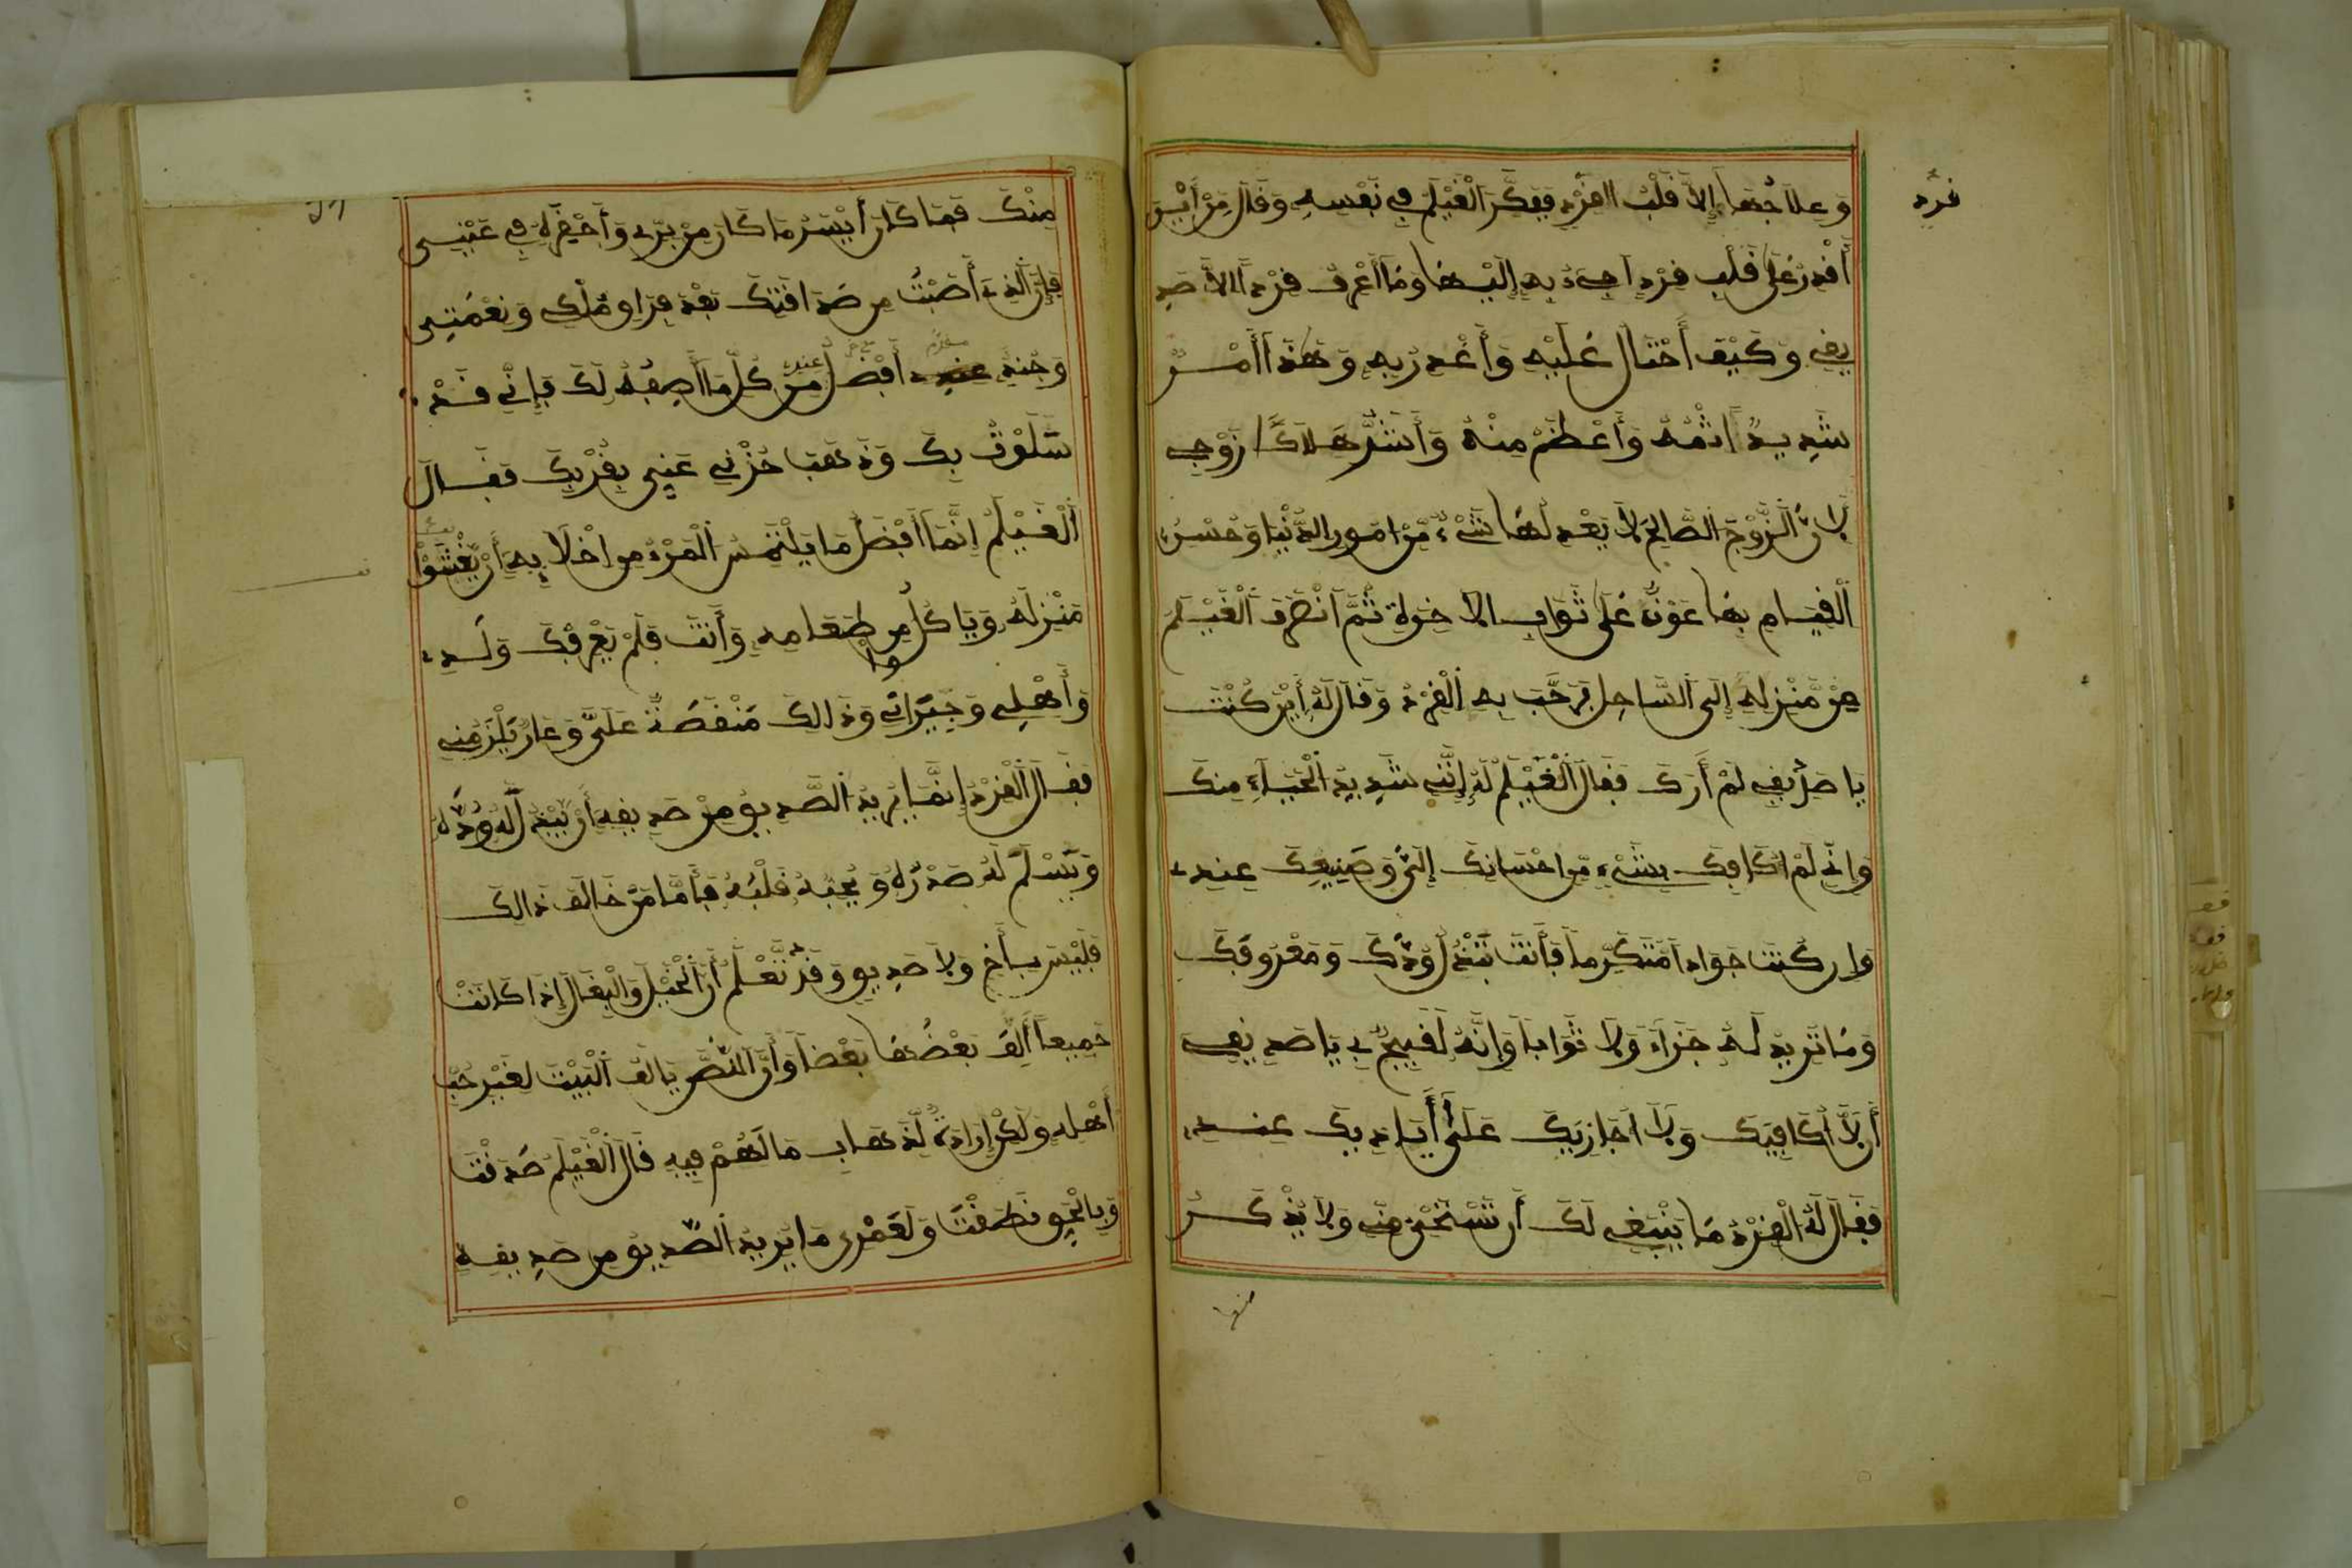 وَعِلَاجُهَا إِلَّا قَلْبُ القِرْدِ فَفَكَّرَ الْغَيْلَمُ فِي نَفْسِهِ وَقَالَ مِنْ أَيْنَ
أَقْدِرُ عَلَى قَلْبِ قِرْدٍ أَجِيءُ بِهِ إِلَيْهَا وَمَا أَعْرِفُ قِرْدًا إِلَّا صَدِ
يقِي وَكَيْفَ أَحْتَالُ عَلَيْهِ وَأَغْدِرُ بِهِ وَهَذَا أَمْرٌ
شَدِيدٌ إِثْمُهُ وَأَعْظَمُ مِنْهُ وَأَشَدُّ هَلَاكًا زَوْجِي
لِأَنَّ الزَّوْجَ الصَّالِحَ لَا يَعْدِلُهَا شَيْءٌ مِّنْ أُمُورِ الدُّنْيَا وَحُسْنُ
الْقِيَامِ بِهَا عَوْنٌ عَلَى ثَوَابِ الآخِرَةِ ثُمَّ انْصَرَفَ الْغَيْلَمُ
مِنْ مَّنْزِلِهِ إِلَى السَّاحِلِ فَرَحَّبَ بِهِ الْقِرْدُ وَقَالَ لَهُ أَيْنَ كُنْتَ
يَا صَدِيقِي لَمْ أَرَكَ فَقَالَ الْغَيْلَمُ لَهُ إِنَّنِي شَدِيدُ الْحَيَاءِ مِنكَ
وَإِنِّي لَمْ أُكَافِكَ بِشَيْءٍ مِّنْ إحْسَانِكَ إِلَيَّ وَصَنِيعِكَ عِنْدِي
وَإِن كُنْتَ جَوَادًا مُتَكَرِّمًا فَأَنتَ تَبْذُلُ وُدَّكَ وَمَعْرُوفَكَ
وَمَا تُرِيدُ لَهُ جَزَاءً وَلَا ثَوَابًا وَإِنَّهُ لَقَبِيحٌ بِي يَا صَدِيقِي
أَن لَّا أُكَافِيَكَ وَلَا أُجَازِيَكَ عَلَى أَيَادِيكَ عِنْدِي
فَقَالَ لَهُ الْقِرْدُ مَا يَنْبَغِي لَكَ أَن تَسْتَحْيَ مِنِّي وَلَا تَذْكُرُ
منها
قرد
مِنْكَ فَمَا كَانَ أَيْسَرُ مَا كَانَ مِنْ بِرِّي وَأَحْقَرَهُ فِي عَيْنِي
فَإِنَّ الَّذِي أَصَبْتُ مِن صَدَاقَتِكَ بَعْدَ فِرَاقِ مُلْكِي وَنِعْمَتِي
وَجُنْدِي عندي أَفْضَلُ عندي مِنْ كُلِّ مَا أَصِفُهُ لَكَ فَإِنِّي قَدْ
سَلَوْتُ بِكَ وَذَهَبَ حُزْنِي عَنِّي بِقُرْبِكَ فَقَالَ
الْغَيْلَمُ إِنَّمَا أَفْضَلُ مَا يَلْتَمِسُ الْمَرْءُ مِنْ اخْلَّائِهِ أَنْ يَغْشَوْا
مَنْزِلَهُ وَيَاكُلُوا مِن طَعَامِهِ وَأَنتَ فَلَمْ يَعْرِفْكَ وَلَدِي
وَأَهْلِي وَجِيرَانِي وَذَالِكَ مَنْقَصَةٌ عَلَيَّ وَعَارٌ يَلْزَمُنِي
فَقَالَ الْقِرْدُ إِنَّمَا يُرِيدُ الصَّدِيقُ مِنْ صَدِيقِهِ أَنْ يَّبْذُلَ لَهُ وُدَّهُ
وَيَسْلَمَ لَهُ صَدْرُهُ وَيُحِبُّهُ قَلْبُهُ فَأَمَّا مَنْ خَالَفَ ذَالِكَ
فَلَيْسَ بِأَخٍ وَلَا صَدِيقٍ وَقَدْ نَعْلَمُ أَنَّ الْخَيْلَ وَالْبِغَالَ إِذَا كَانَتْ
جَمِيعًا أَلِفَ بَعْضُهَا بَعْضًا وَأَنَّ اللِّصَّ يَالَفُ الْبَيْتَ لِغَيْرِ حُبِّ
أَهْلِهِ وَلَكِنْ إِرَادَةً لِّذَهَابِ مَا لَهُمْ فِيهِ قَالَ الْغَيْلَمُ صَدَقْتَ
وَبِالْحَقِّ نَطَقْتَ وَلَعَمْرِي مَا يُرِيدُ الصَّدِيقُ مِن صَدِيقِهِ